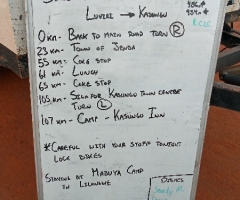 Luviri → Kasungu
0km - Back to main road turn (R)
23 km - Town of Jenda
55 km Coke stop
61 km Lunch
65 km - Coke stop
105 km - Sign for Kasungu town centre
Turn (L)
107 km - Camp - Kasungu Inn
*Careful with your stuff tonight
Lock bikes
Staying at Mabuya Camp
in Lilongwe
Dishes